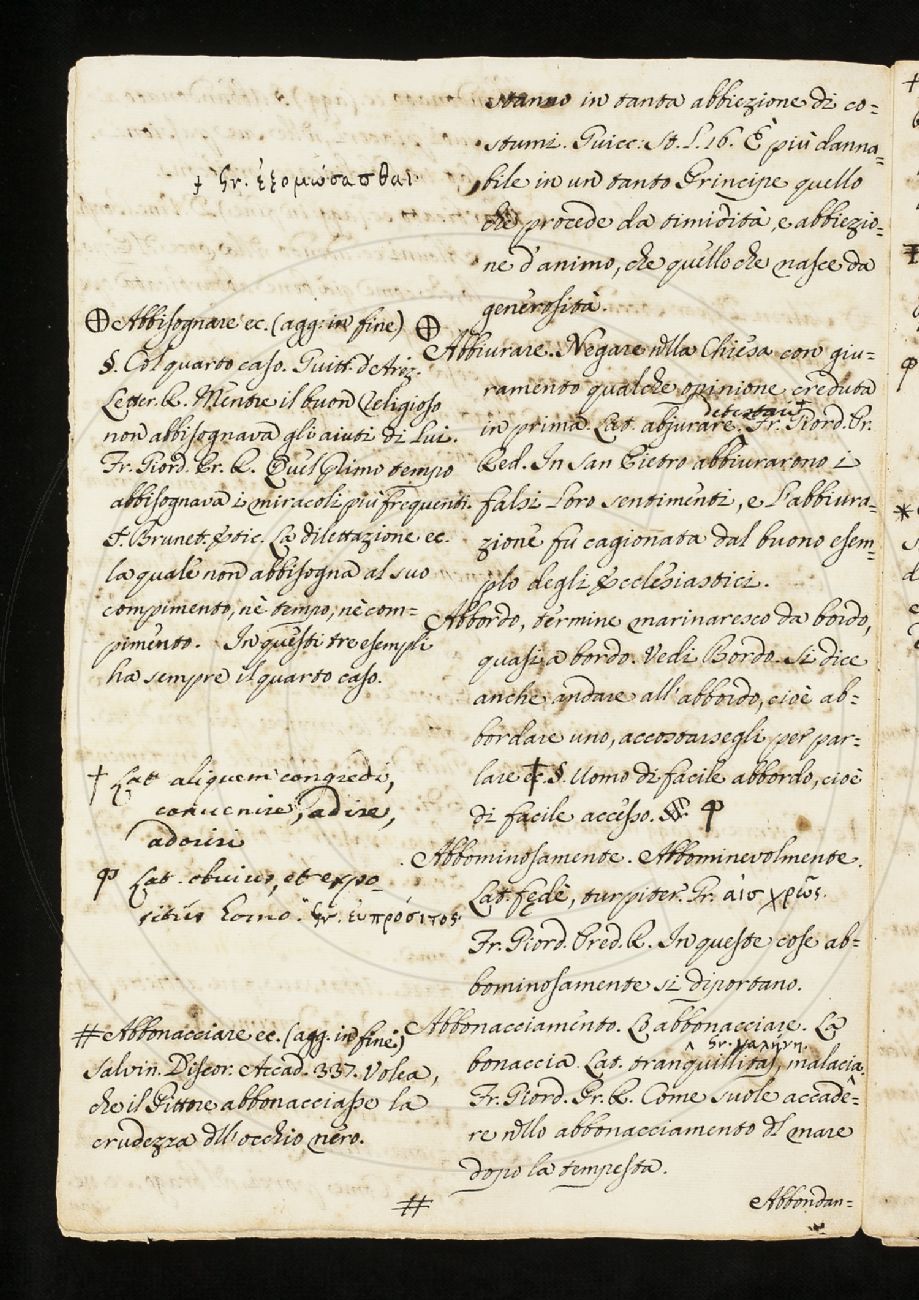 stanno in tanta abbiezione di co=
stumi. Guicc: St. L. 16. È più danna=
bile in un tanto Principe quello
che procede da timidità, e abbiezio=
ne d'animo, che quello che nasce da
generosità.
Abbiurare. Negare nlla Chiesa con giu=
ramento qualche opinione creduta
detestari
in prima. Lat. abjurare. + Fr. Giord. Pr.
Red. In San Pietro abbiurarono i
falsi loro sentimenti, e l'abbiura=
zione fu cagionata dal buono esem=
plo degli Ecclesiastici.
Abbordo, termine marinaresco da bordo,
quasi a bordo. Vedi Bordo. Si dice
anche andare all'abbordo, cioè ab=
bordare uno, accostarsegli per par=
lare ec. † §. Uomo di facile abbordo, cioè
di facile accesso. φ
Abbominosamente. Abbominevolmente.
Lat. fędè, turpiter. Gr. αἰσχρῶς.
Fr. Giord. Pred. R. In queste cose ab=
bominosamente si diportano.
Abbonacciamento. Lo abbonacciare. La
Gr. γαλήνη.
bonaccia. Lat. tranquillitas, malacia.
Fr. Giord. Pr. R. Come suole accade=
re nllo abbonacciamento dl mare
dopo la tempesta.
Abbondan=
† Gr. ἐξομώσασθαι
⊕ Abbisognare ec. (agg: in fine) ⊕
§. Col quarto caso. Guitt. d'Arez.
Letter. R. Mentre il buon Religioso
non abbisognava gli aiuti di lui.
Fr. Giord. Pr. R. Quel primo tempo
abbisognava i miracoli più frequenti.
F. Brunet. Etic. La dilettazione ec.
la quale non abbisogna al suo
compimento, nè tempo, nè com=
pimento. In questi tre esempli
ha sempre il quarto caso.
† Lat. aliquem congredi,
convenire, adire,
adoriri
φ Lat. obvius, et expo=
situs homo. Gr. εὐπρόσιτος
# Abbonacciare ec. (agg. in fine)
Salvin. Discor. Accad. 337. Volea,
che il Pittore abbonacciasse la
crudezza dll'occhio nero.
#